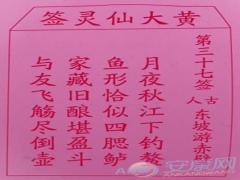 黄大仙灵签
第三十七签
古人 东坡游赤壁
月夜秋江下钓鳌
鱼形恰似四腮鲈
家藏旧酿堪盈斗
与友飞觞尽倒壶
安康网